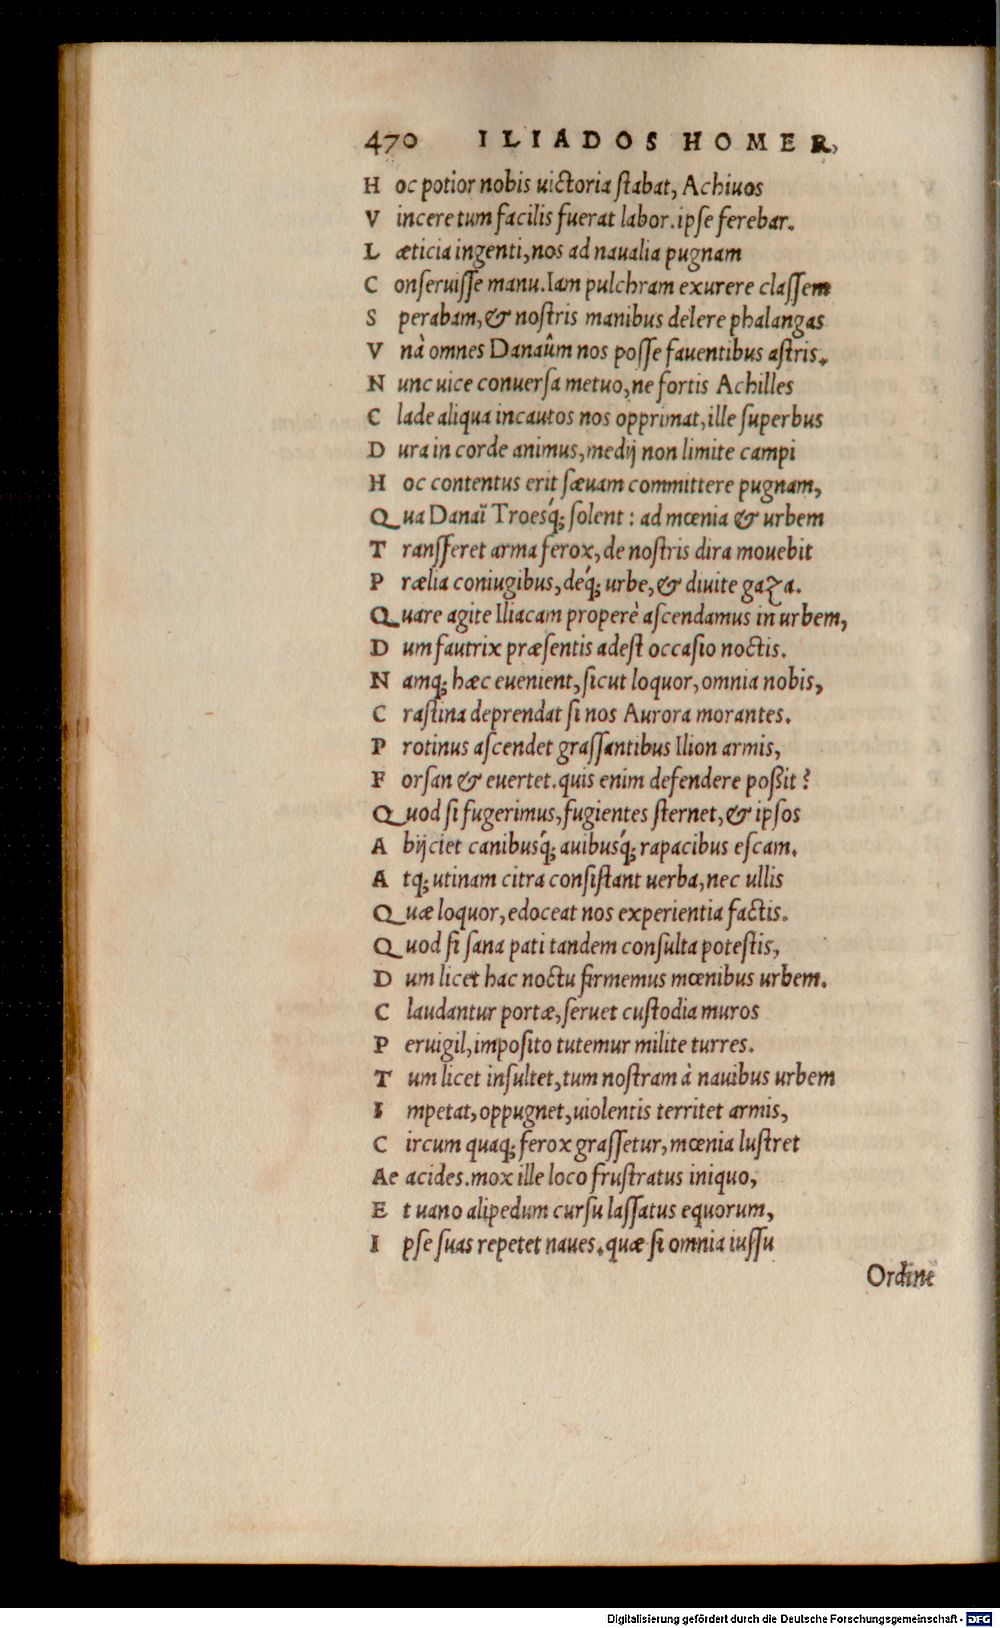 470 ILIADOS HOMER,
H oc potior nobis uictoria ſtabat, Achiuos
V incere tum facilis fuerat labor. ipſe ferebar.
L æticia ingenti, nos ad naualia pugnam
C onſeruiſſe manu. Iam pulchram exurere claſſem
S perabam, & noſtris manibus delere phalangas
V nà omnes Danaûm nos poſſe fauentibus aſtris.
N unc uice conuerſa metuo, ne fortis Achilles
C lade aliqua incautos nos opprimat, ille ſuperbus
D ura in corde animus, medij non limite campi
H oc contentus erit ſæuam committere pugnam,
Q ua Danaï Troesq́; ſolent : ad mœnia & urbem
T ranſferet arma ferox, de noſtris dira mouebit
P rælia coniugibus, deq́; urbe, & diuite gaza.
Q uare agite Iliacam properè aſcendamus in urbem,
D um fautrix præſentis adeſt occaſio noctis.
N amq; hæc euenient, ſicut loquor, omnia nobis,
C raſtina deprendat ſi nos Aurora morantes.
P rotinus aſcendet graſſantibus Ilion armis,
F orſan & euertet. quis enim defendere poßit ?
Q uod ſi fugerimus, fugientes ſternet, & ipſos
A bijciet canibusq́; auibusq́; rapacibus eſcam.
A tq; utinam citra conſiſtant uerba, nec ullis
Q uæ loquor, edoceat nos experientia factis.
Q uod ſi ſana pati tandem conſulta poteſtis,
D um licet hac noctu firmemus mœnibus urbem.
C laudantur portæ, ſeruet cuſtodia muros
P eruigil, impoſito tutemur milite turres.
T um licet inſultet, tum noſtram à nauibus urbem
I mpetat, oppugnet, uiolentis territet armis,
C ircum quaq; ferox graſſetur, mœnia luſtret
Ae acides. mox ille loco fruſtratus iniquo,
E t uano alipedum curſu laſſatus equorum,
I pſe ſuas repetet naues. quæ ſi omnia iuſſu
Ordine
Digitalisierung gefördert durch die Deutsche Forschungsgemeinschaft - DFG